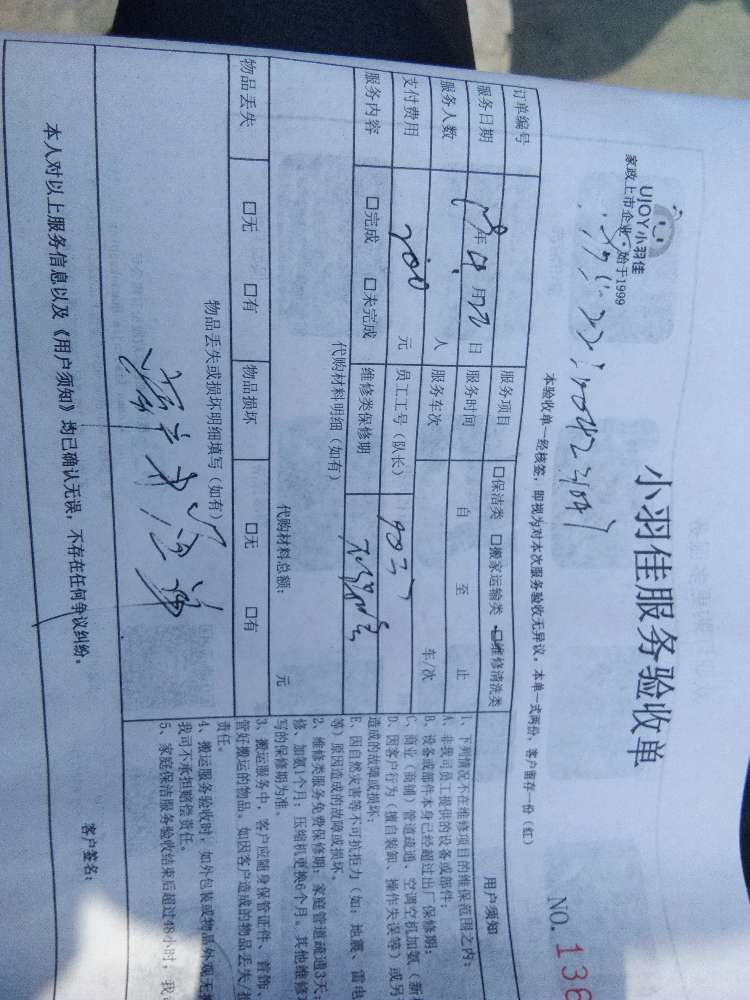 UJOY小羽佳
家政上市企业·始于1999
小羽佳服务验收单
本验收单一经核签，即视为对本次服务验收无异议。本单一式两份，客户留存一份（红）
NO. 136
订单编号
服务项目 □保洁类 □搬家运输类 □维修清洗类
服务日期 年 月 日 服务时间 自 至 止
服务人数 人 服务车次 车/次
支付费用 200 元 员工工号（队长） 9037
服务内容 □完成 □未完成 维修类保修期
代购材料明细（如有）
代购材料总额： 元
物品丢失 □无 □有 物品损坏 □无 □有
物品丢失或损坏明细填写（如有）
用户须知
1、下列情况不在维修项目的维保范围之内：
A、非我司员工提供的设备或部件；
B、设备或部件本身已经超过出厂保修期；
C、商业（商铺）管道疏通、空调空机加氨（新
D、因客户行为（擅自装卸、操作失误等）或另
造成的故障或损坏；
E、因自然灾害等不可抗拒力（如：地震、雷电
等）原因造成的故障或损坏。
2、维修类服务免费保修期：家庭管道疏通3天；
修、加氨1个月；压缩机更换6个月。其他维修
写的保修期为准。
3、搬运服务中，客户应随身保管证件、首饰、
管好搬运的物品。如因客户造成的物品丢失/损
责任。
4、搬运服务验收时，如外包装或物品外观无损
我司不承担赔偿责任。
5、家庭保洁服务验收结束后超过48小时，我
本人对以上服务信息以及《用户须知》均已确认无误，不存在任何争议纠纷。
客户签名：